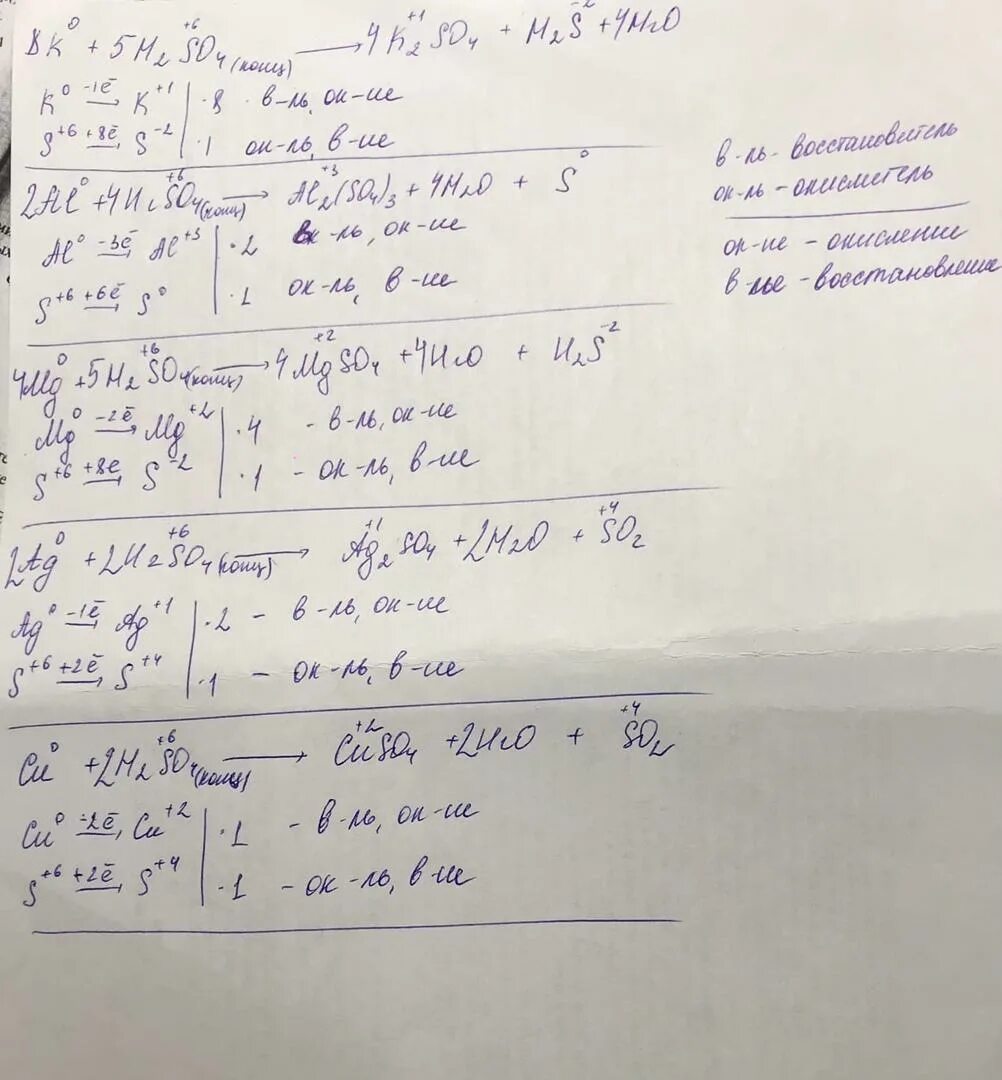 8K⁰ + 5H₂S⁺⁶O₄(конц) → 4K⁺¹₂SO₄ + H₂S⁻² + 4H₂O
K⁰ -1ē → K⁺¹ | ·8 · в-ль, ок-ие
S⁺⁶ +8ē → S⁻² | ·1 ок-ль, в-ие
в-ль - восстановитель
ок-ль - окислитель
ок-ие - окисление
в-лье - восстановление
2Al⁰ + 4H₂S⁺⁶O₄(конц) → Al⁺³₂(SO₄)₃ + 4H₂O + S⁰
Al⁰ -3ē → Al⁺³ | ·2 в-ль, ок-ие
S⁺⁶ +6ē → S⁰ | ·1 ок-ль, в-ие
4Mg⁰ + 5H₂S⁺⁶O₄(конц) → 4Mg⁺²SO₄ + 4H₂O + H₂S⁻²
Mg⁰ -2ē → Mg⁺² | ·4 - в-ль, ок-ие
S⁺⁶ +8ē → S⁻² | ·1 - ок-ль, в-ие
2Ag⁰ + 2H₂S⁺⁶O₄(конц) → Ag⁺¹₂SO₄ + 2H₂O + S⁺⁴O₂
Ag⁰ -1ē → Ag⁺¹ | ·2 - в-ль, ок-ие
S⁺⁶ +2ē → S⁺⁴ | ·1 - ок-ль, в-ие
Cu⁰ + 2H₂S⁺⁶O₄(конц) → Cu⁺²SO₄ + 2H₂O + S⁺⁴O₂
Cu⁰ -2ē → Cu⁺² | ·1 - в-ль, ок-ие
S⁺⁶ +2ē → S⁺⁴ | ·1 - ок-ль, в-ие